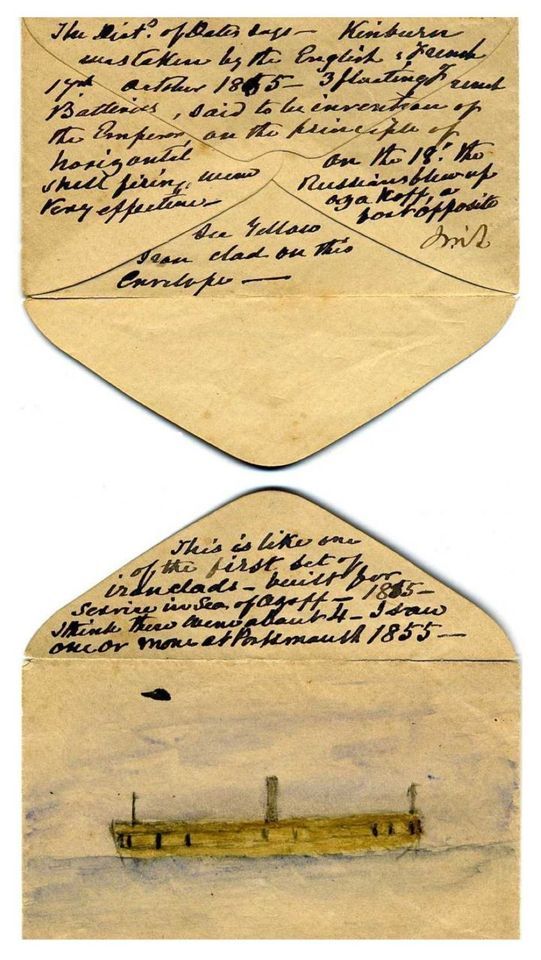 The Dict^y. of Dates says — Kinburn
was taken by the English & French
17th October 1855 — 3 floating French
Batteries, said to be invention of
the Emperor, on the principle of
horizontal
shell firing, were
very effective —
on the 18^t. the
Russians blew up
Oczakoff, a
fort opposite
See Yellow
Iron clad on this
Envelope —
This is like one
of the first set of
ironclads — built for
Service in Sea of Azoff — 1855 —
I think there were about 4 — I saw
one or more at Portsmouth 1855 —